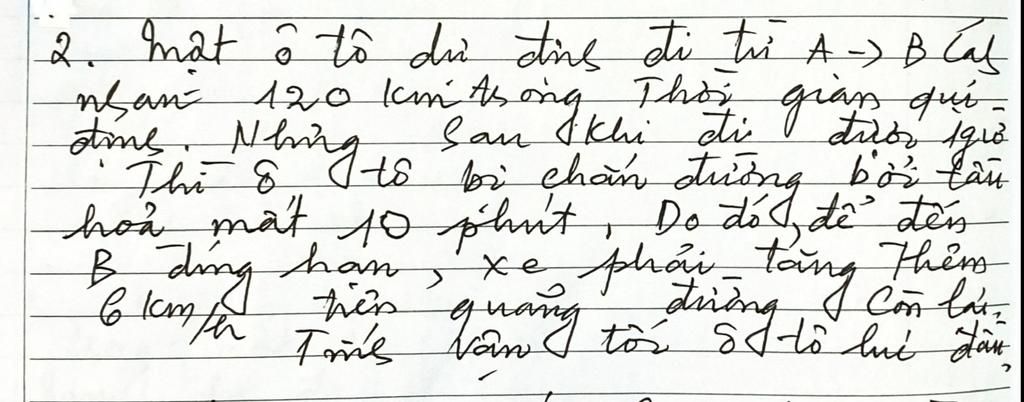 2. Một ô tô dự định đi từ A -> B cách
nhau 120 km trong Thời gian qui
định. Nhưng sau khi đi được 1 giờ
Thì ô tô bị chắn đường bởi tàu
hoả mất 10 phút, Do đó, để đến
B đúng hạn, xe phải tăng Thêm
6 km/h trên quãng đường còn lại.
Tính vận tốc ô tô lúc đầu